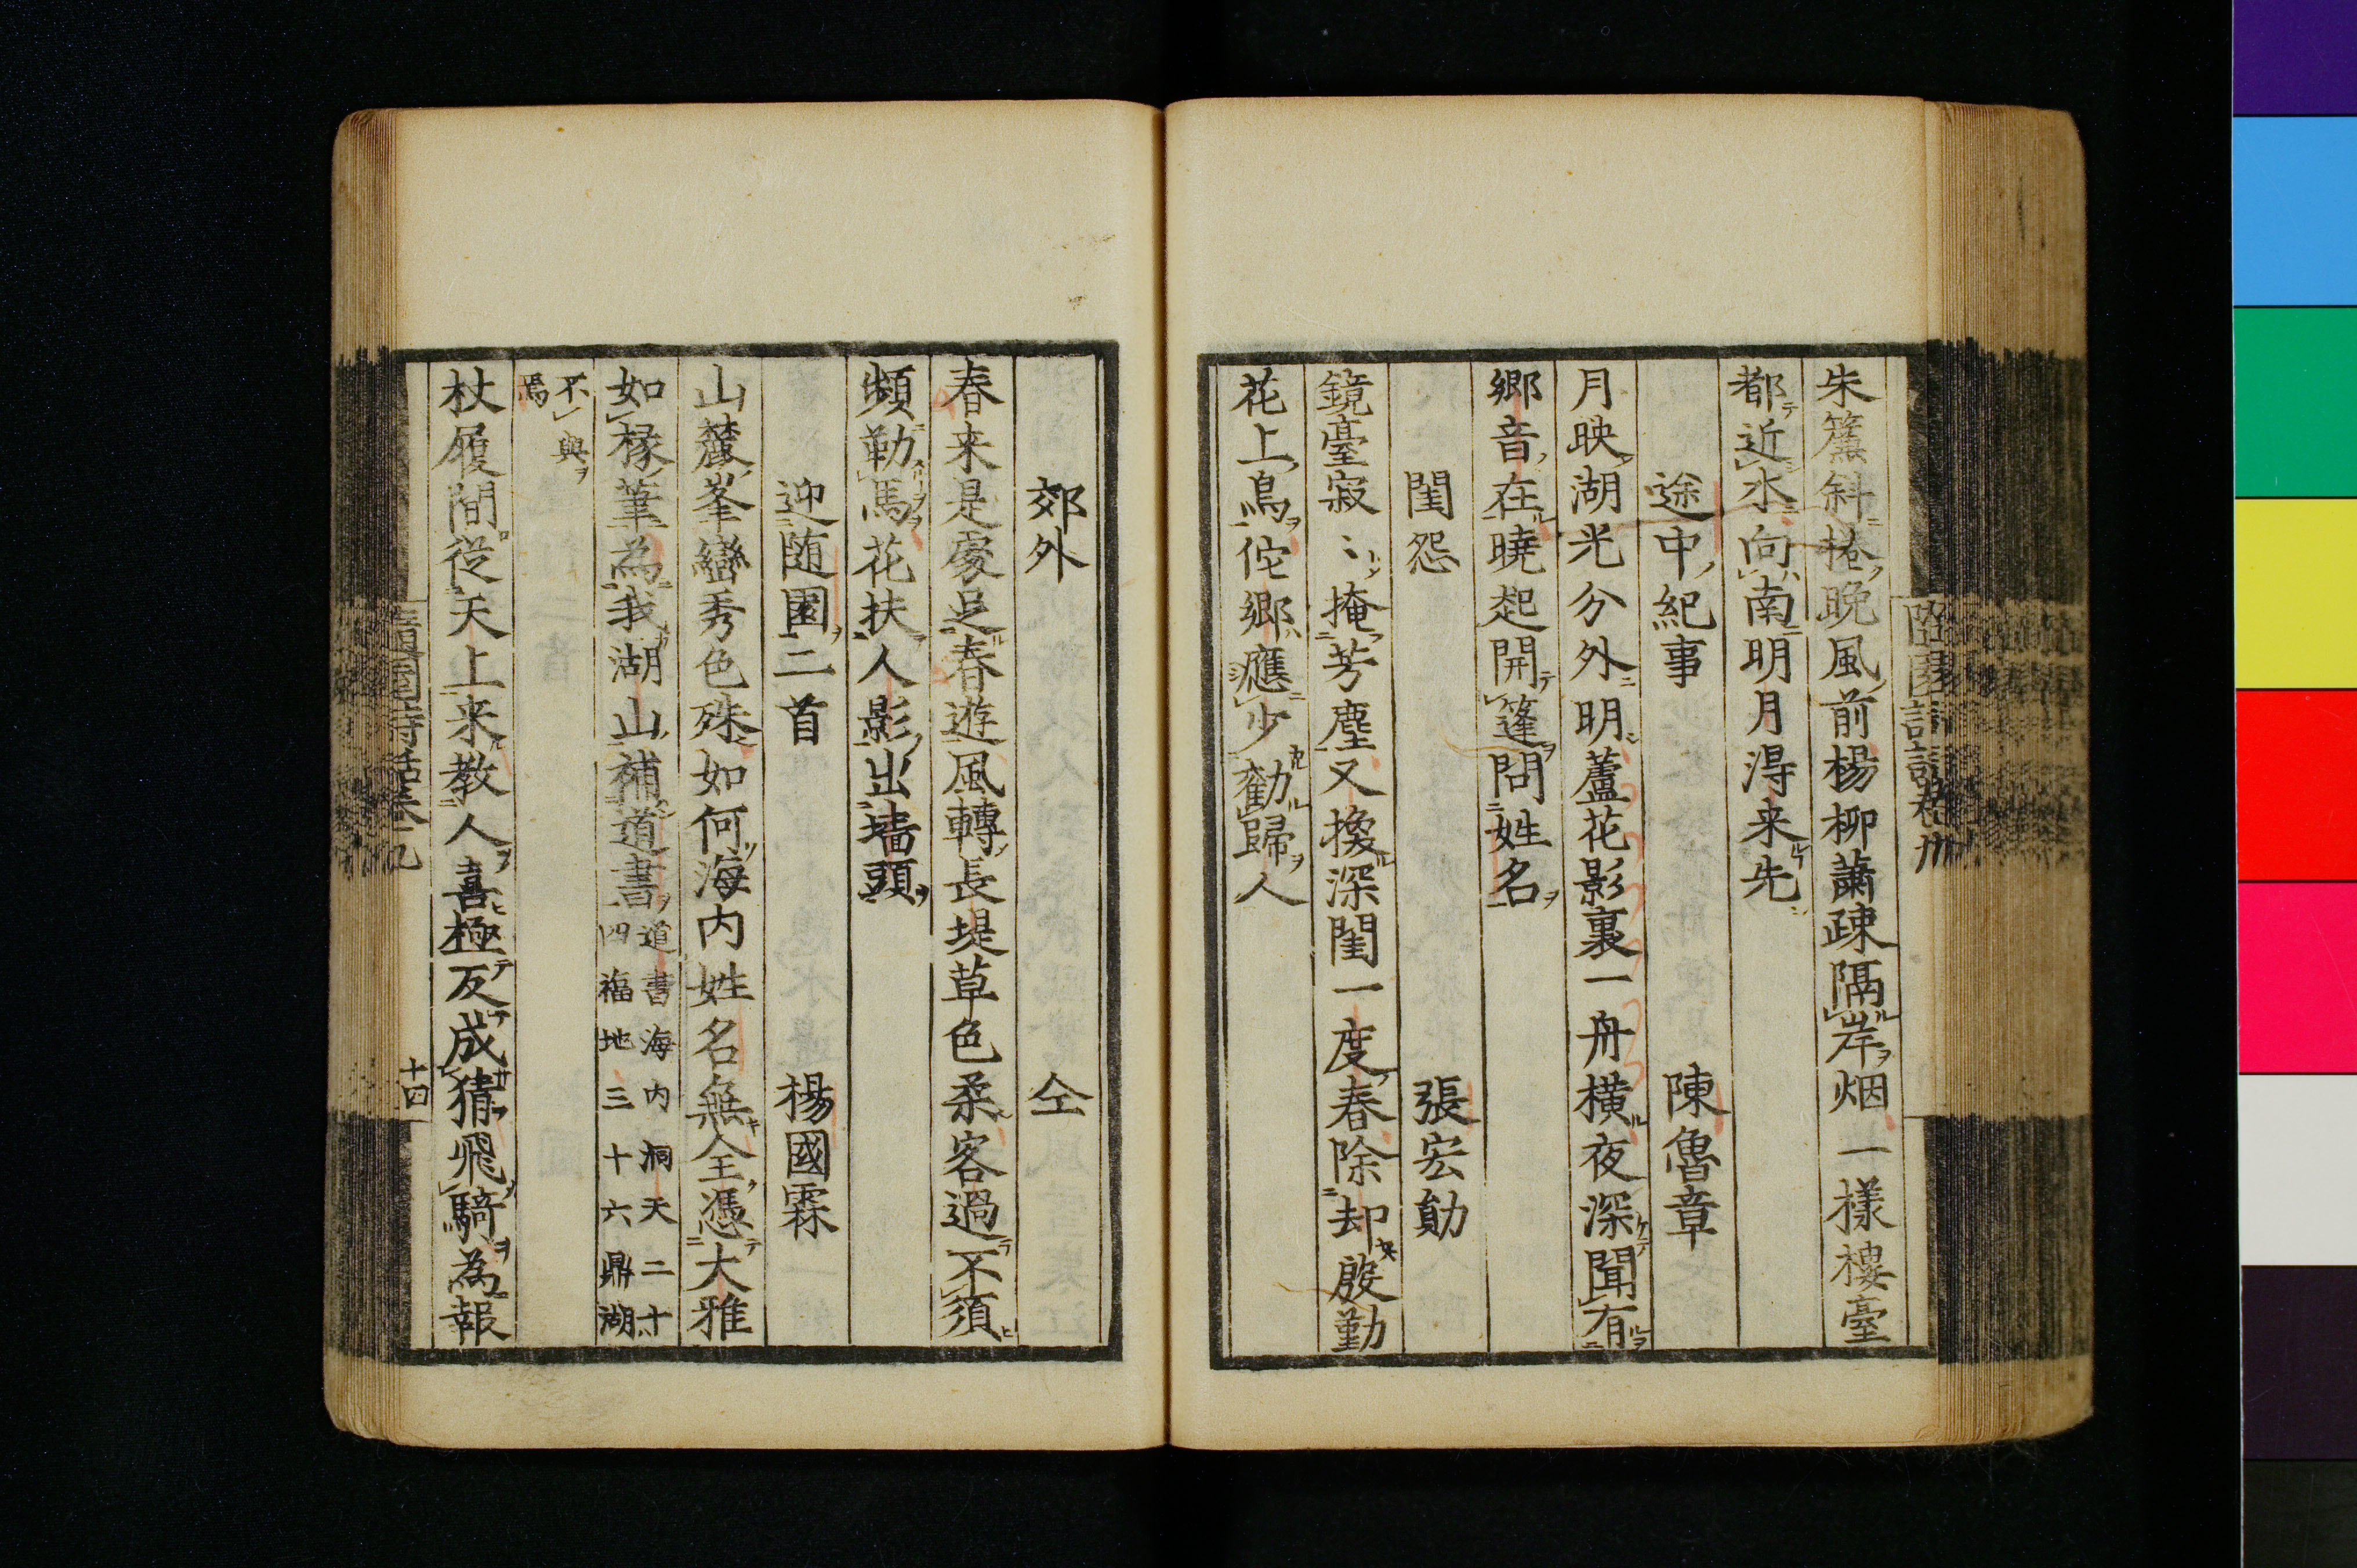 朱簾斜捲晩風前楊柳蕭疎隔岸烟一樣樓臺
都近水向南明月淂来先
途中紀事 陳魯章
月映湖光分外明蘆花影裏一舟橫夜深聞有
鄉音在曉起開篷問姓名
閨怨 張宏勛
鏡臺寂〻掩芳塵又換深閨一度春除却殷勤
花上鳥佗鄉應少勸歸人
郊外 仝
春来是處足春遊風轉長堤草色柔客過不須
頻勒馬花扶人影出墻頭
迎随園二首 楊國霖
山麓峯巒秀色殊如何海内姓名無全憑大雅
如椽筆為我湖山補道書道書海内洞天二十
四福地三十六鼎湖
不與
焉
杖履間從天上来教人喜極反成猜飛騎為報
十四